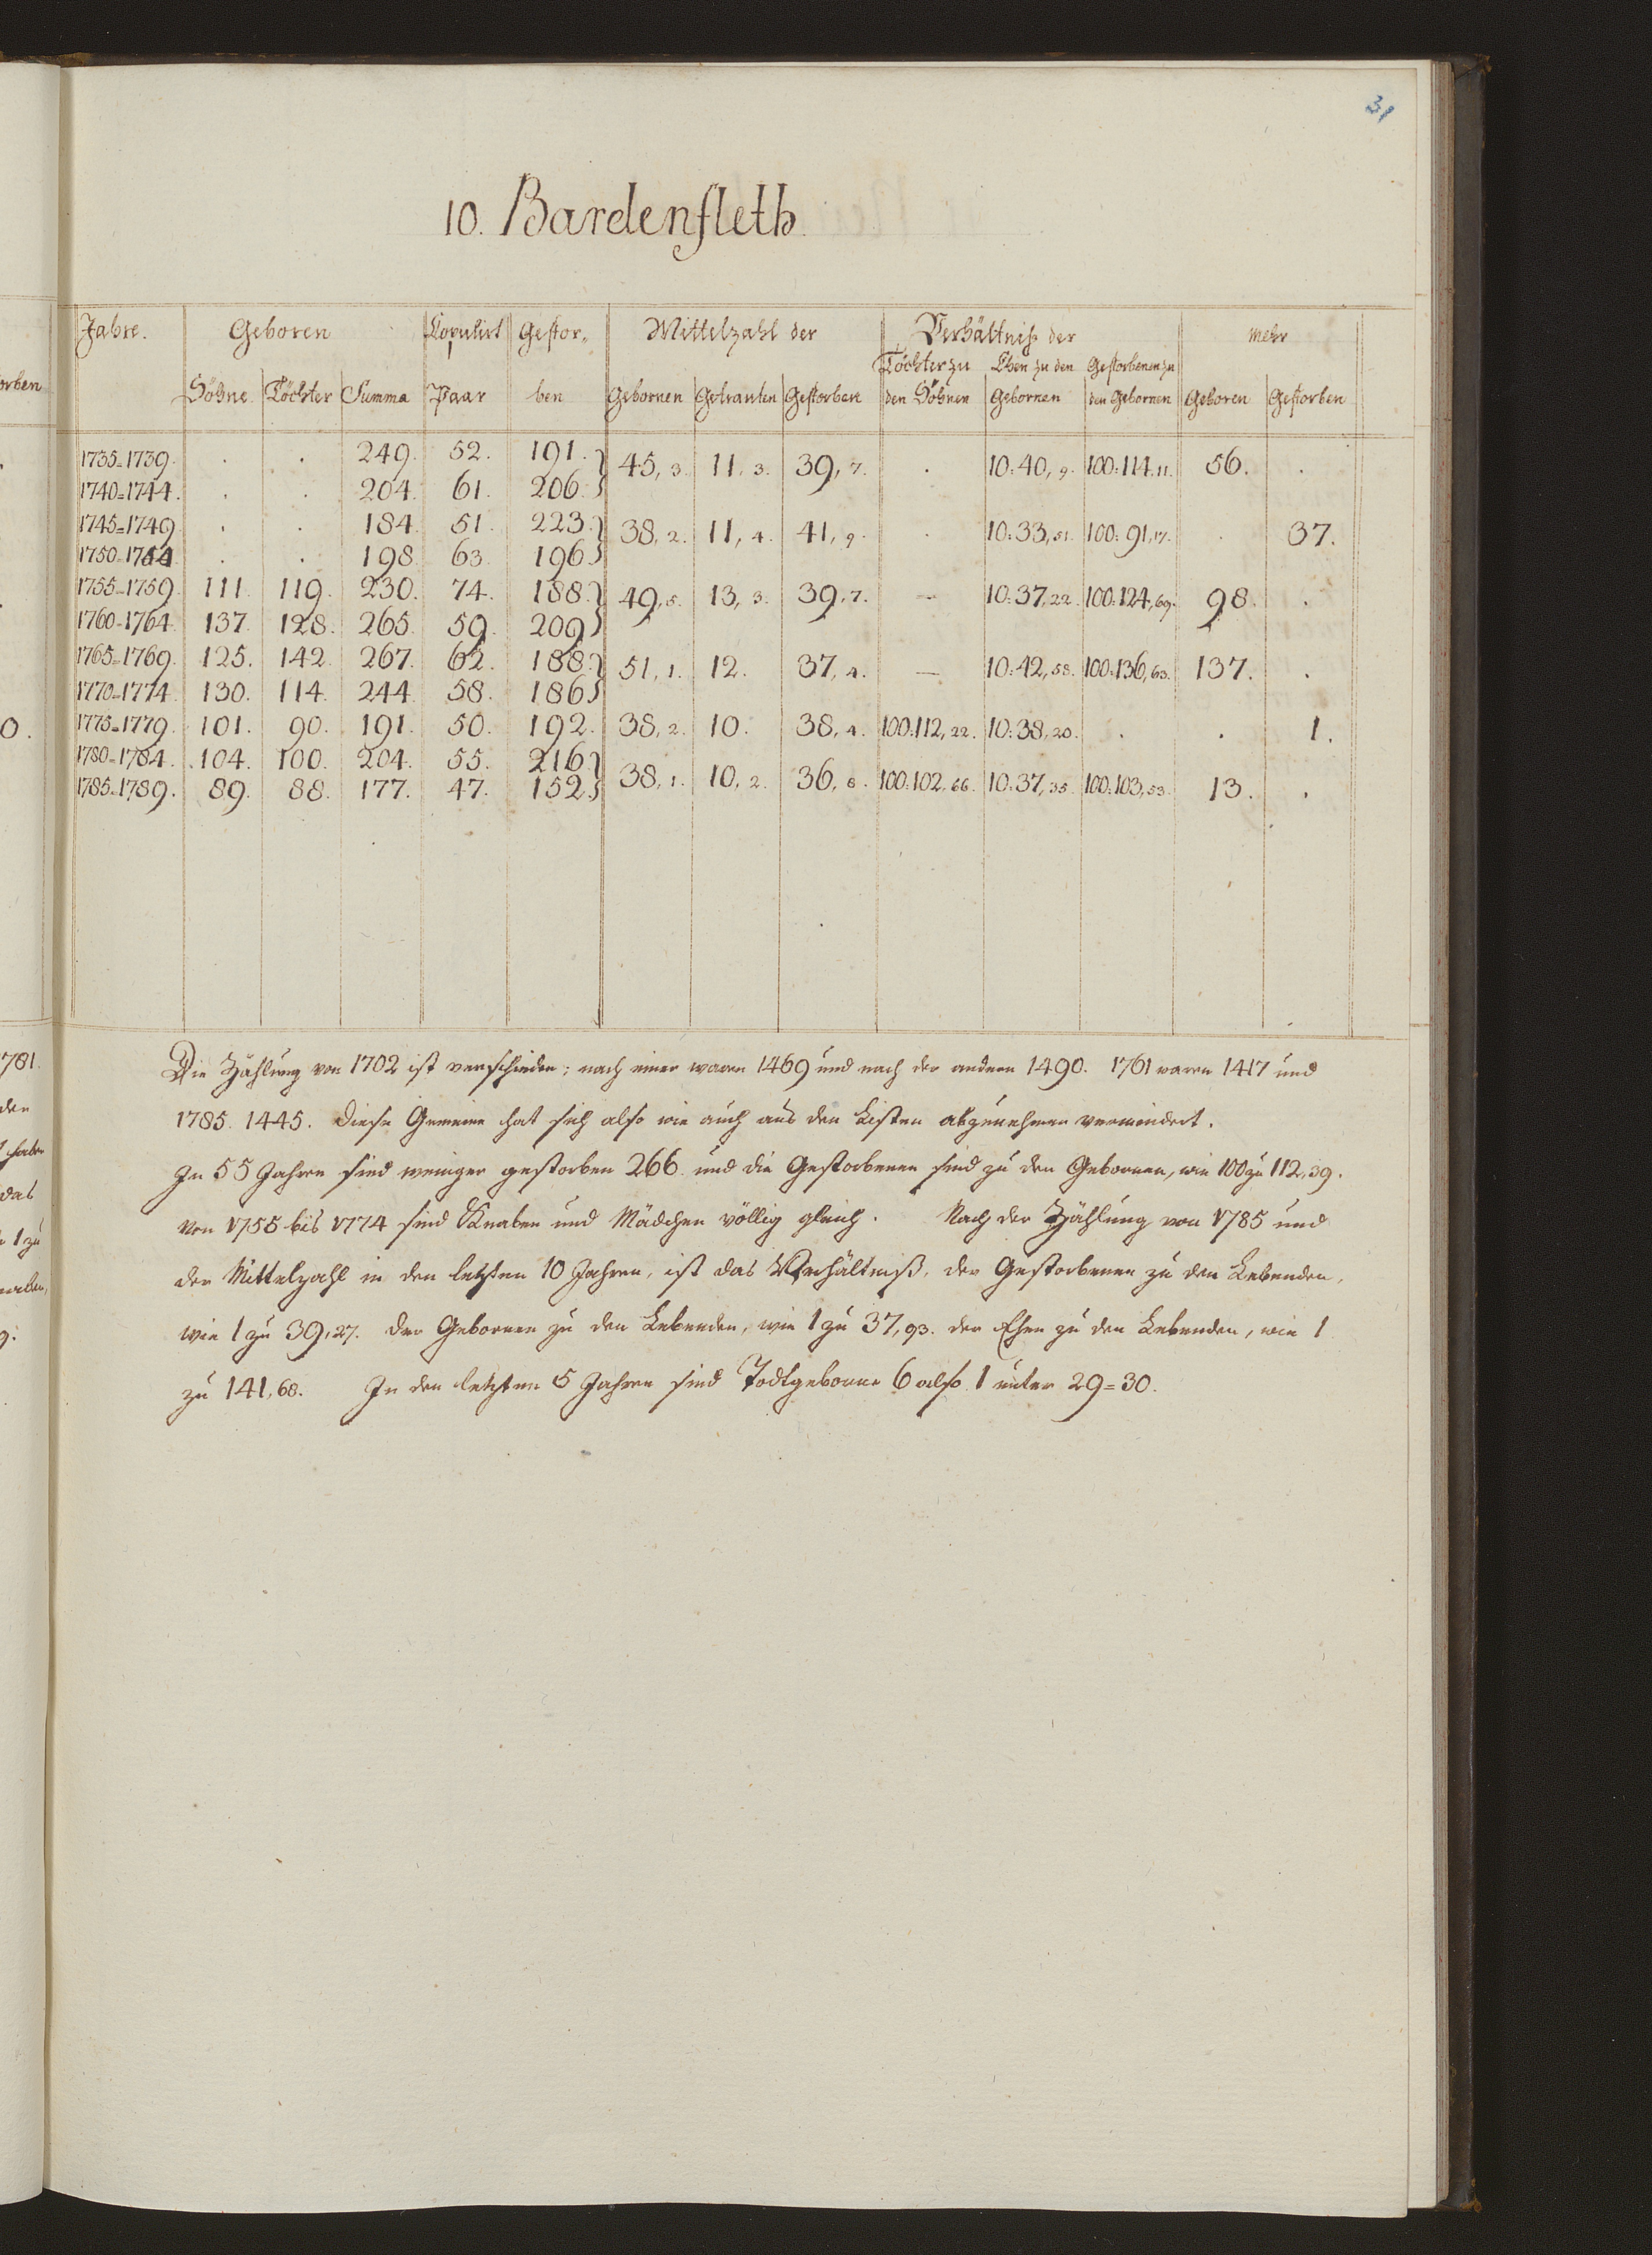 31
10. Bardenfleth
Jahre. Geboren Copulirt Gestor= Mittelzahl der Verhältniß der mehr
Töchter zu Ehen zu den Gestorbenen zu
Söhne Töchter Summa Paar ben Gebornen Getrauten Gestorben den Söhnen Gebornen den Gebornen Geboren Gestorben
1735=1739. . . 249. 52. 191. 45,3. 11,3. 39,7. . 10:40,9. 100:114,11. 56. .
1740=1744. . . 204. 61. 206.
1745=1749 . . 184. 51. 223. 38,2. 11,4. 41,9. . 10:33,51. 100:91,17. . 37.
1750=1754 . . 198 63. 196
1755=1759. 111. 119. 230. 74. 188. 49,5. 13,3. 39,7. — 10:37,22. 100:124,69. 98. .
1760=1764. 137. 128. 265. 59. 209
1765=1769. 125. 142. 267. 62. 188. 51,1. 12. 37,4. — 10:42,58. 100:136,63. 137. .
1770=1774. 130. 114. 244. 58. 186
1775=1779. 101. 90. 191. 50. 192. 38,2. 10. 38,4. 100:112,22. 10:38,20. . . 1.
1780=1784. 104. 100. 204. 55. 216 38,1. 10,2. 36,8. 100:102,66. 10:37,35. 100:103,53. 13. .
1785=1789. 89. 88. 177. 47. 152.
Die Zählung von 1702 ist verschieden; nach einer waren 1469 und nach der andern 1490. 1761 waren 1417 und
1785. 1445. Diese Gemeine hat sich also wie auch aus den Listen abzunehmen vermindert.
In 55 Jahren sind weniger gestorben 266. und die Gestorbenen sind zu den Gebornen, wie 100 zu 112,39.
Von 1755 bis 1774 sind Knaben und Mädchen völlig gleich. Nach der Zählung von 1785 und
der Mittelzahl in den letzten 10 Jahren, ist das Verhältniß, der Gestorbenen zu den Lebenden,
wie 1 zu 39,27. der Gebornen zu den Lebenden, wie 1 zu 37,93. der Ehen zu den Lebenden, wie 1
zu 141,68. In den letzten 5 Jahren sind Todtgeborne 6 also 1 unter 29=30.